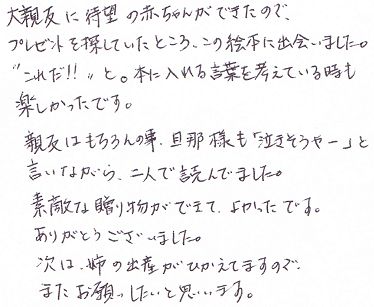 大親友に待望の赤ちゃんができたので、
プレゼントを探していたところ、この絵本に出会いました。
"これだ!!"と。本に入れる言葉を考えている時も
楽しかったです。
親友はもちろんの事、旦那様も「泣きそうやー」と
言いながら、二人で読んでました。
素敵な贈り物ができて、よかったです。
ありがとうございました。
次は、姉の出産がひかえてますので、
またお願いしたいと思います。